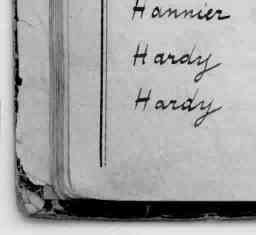 Hannier
Hardy
Hardy